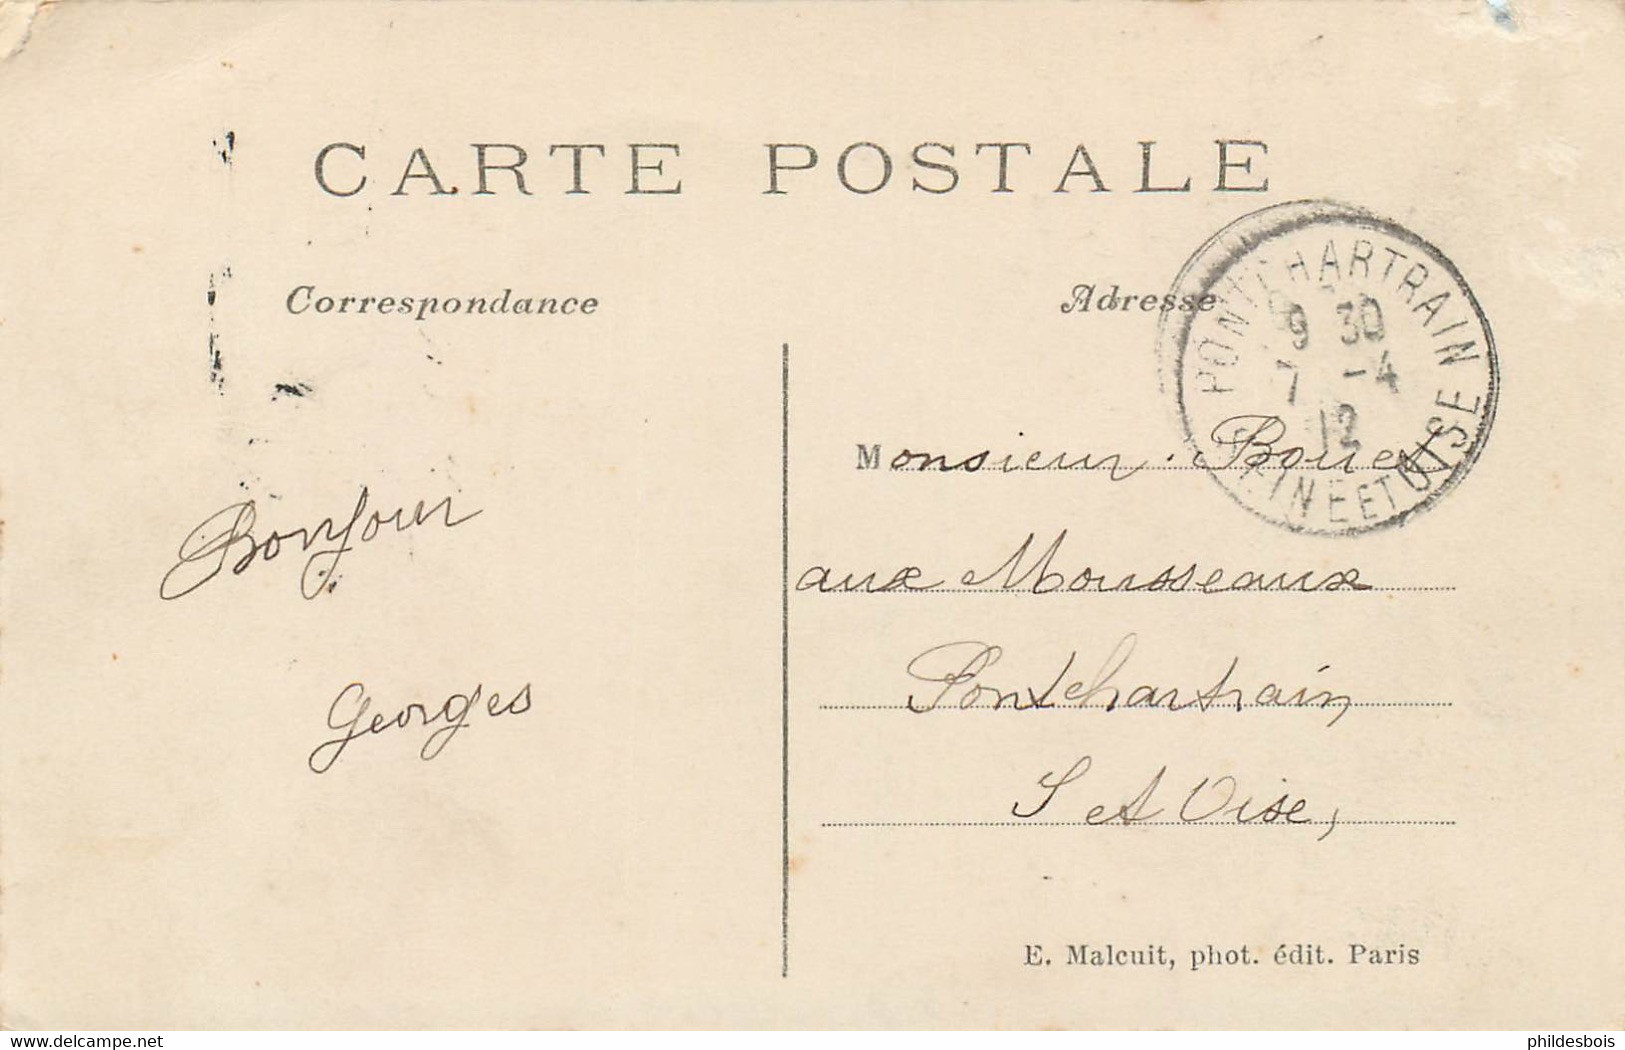 CARTE POSTALE
Correspondance
Adresse
PONTCHARTRAIN
9 30
7 -4
12
SEINE ET OISE
Monsieur. Bouet
aux Mousseaux
Pontchartrain
S et Oise,
Bonjour
Georges
E. Malcuit, phot. édit. Paris
delcampe.net
phildesbois